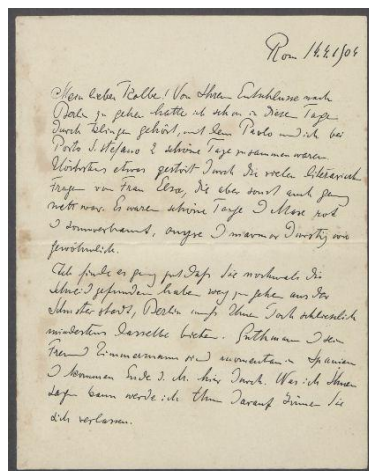 Rom 14.4.1904
Mein lieber Kolbe! Von Ihrem Entschlusse nach
Berlin zu gehen hatte ich schon in diesen Tagen
durch Klinger gehört, mit dem Paolo und ich bei
Porto S. Stefano 2 schöne Tage zusammen waren
etwas gestört durch die vielen literarischen
Fragen von Frau Elsa, die aber sonst auch ganz
nett war. Es waren schöne Tage
wie
gewöhnlich.
Ich finde es ganz gut daß Sie nochmals die
gefunden haben weg zu gehen aus der
Berlin muß Ihnen doch schliesslich
mindestens dasselbe bieten. sein
Freund Zimmermann sind momentan in Spanien
kommen Ende d. M. hier durch. Was ich Ihnen
sagen kann werde ich thun darauf können Sie
sich verlassen.